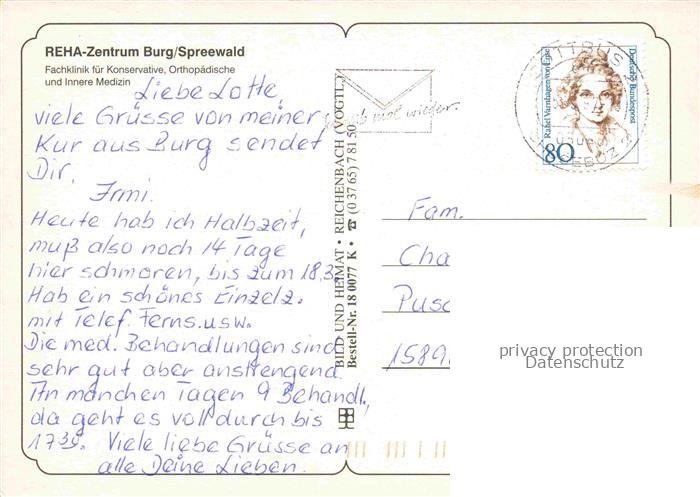 REHA-Zentrum Burg/Spreewald
Fachklinik für Konservative, Orthopädische
und Innere Medizin
Liebe Lotte,
viele Grüsse von meiner
Kur aus Burg sendet
Dir,
Irmi.
Heute hab ich Halbzeit,
muß also noch 14 Tage
hier schmoren, bis zum 18.3.
Hab ein schönes Einzelz.
mit Telef. Ferns. usw.
Die med. Behandlungen sind
sehr gut aber anstrengend.
An manchen Tagen 9 Behandl.,
da geht es voll durch bis
17³⁰. Viele liebe Grüsse an
alle Deine Lieben.
BILD UND HEIMAT • REICHENBACH (VOGTL.)
Bestell-Nr. 18 0077 K • ☎ (0 37 65) 7 81 50
mal wieder.
COTTBUS
Rahel Varnhagen von Ense
Deutsche Bundespost
80
Fam.
Cha
Pusc
1589
privacy protection
Datenschutz